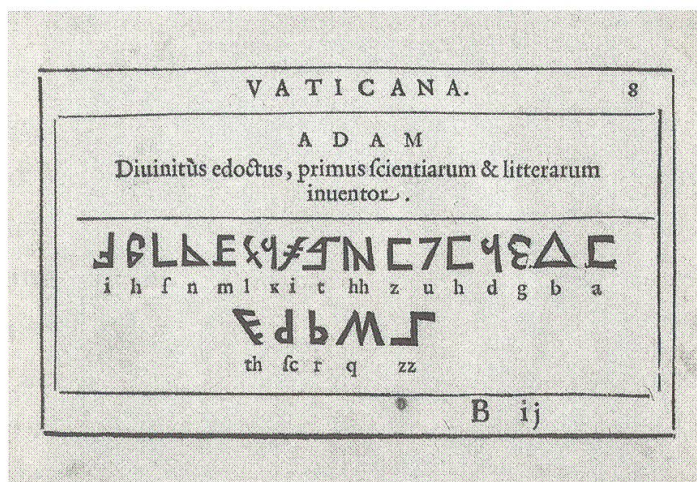 VATICANA. 8
ADAM
Diuinitùs edoctus, primus ſcientiarum & litterarum
inuentor.
i h ſ n m l x i t hh z u h d g b a
th ſc r q zz
B ij